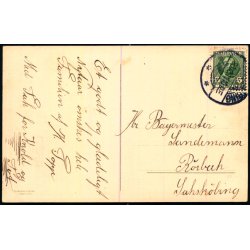 Et godt og glædeligt
Nytaar ønskes hele
Familien af H. Popp
Med Tak for Venlig og
Hr Bagermester
Sandemann
Rörbæk
Sakskøbing